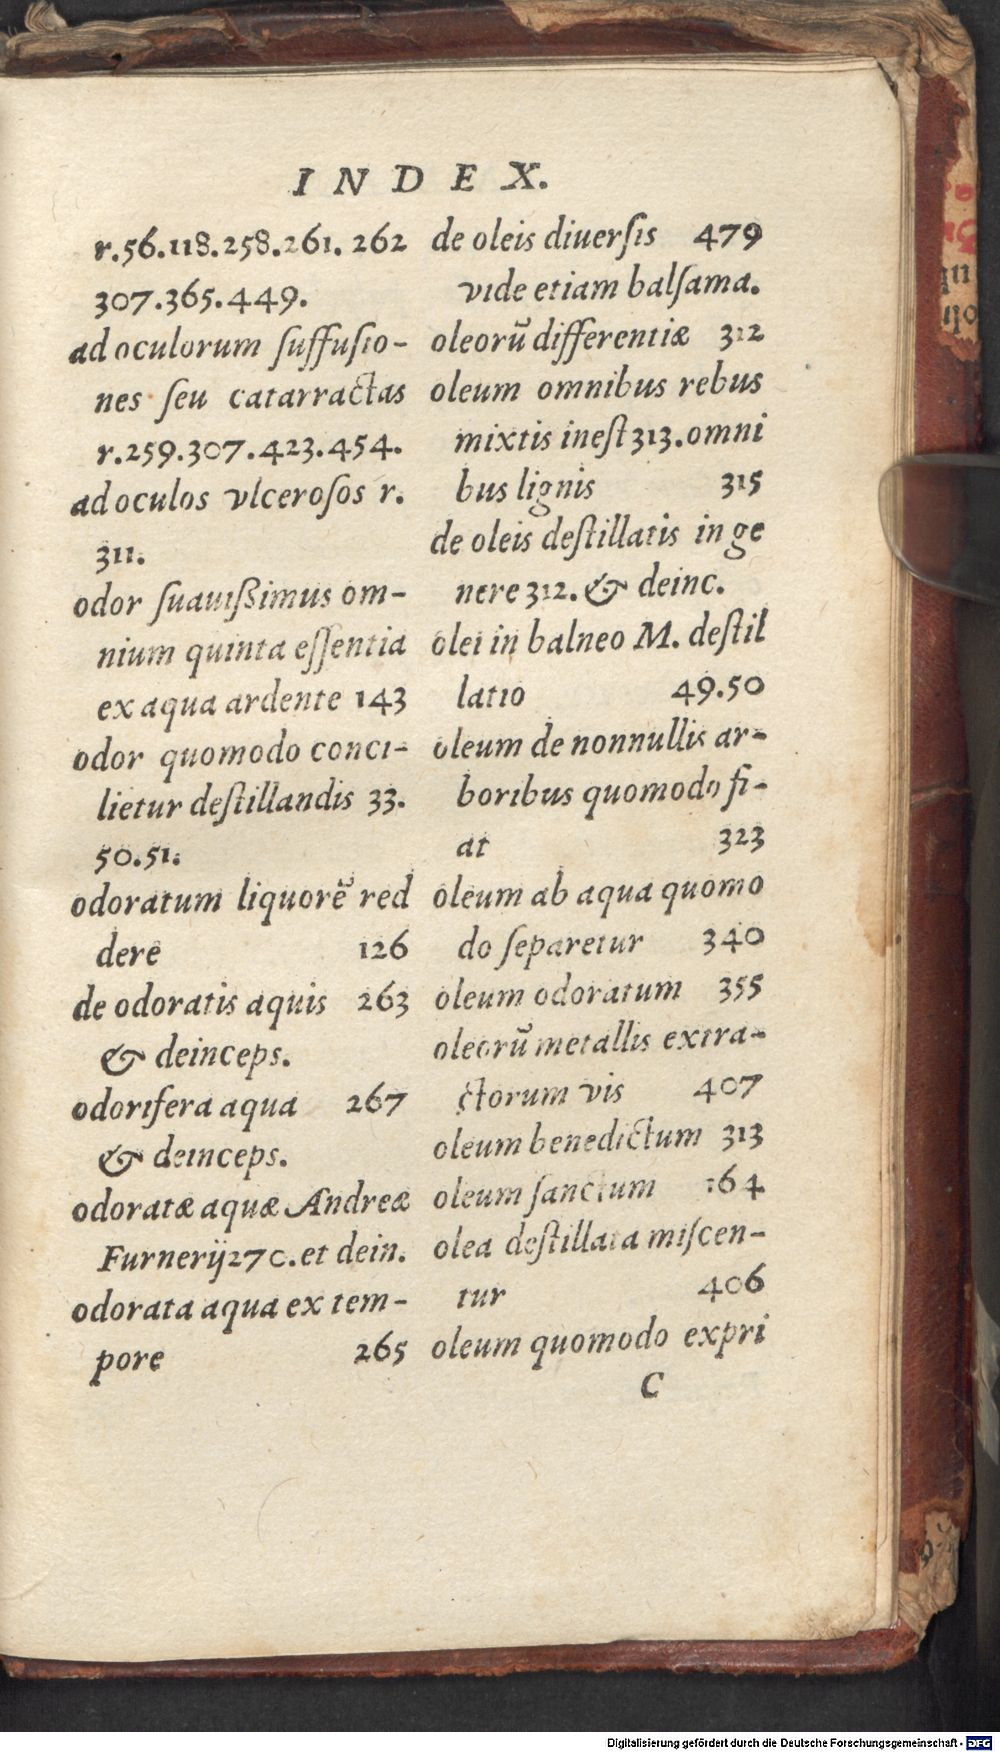 INDEX.
r.56.118.258.261.262
307.365.449.
ad oculorum ſuffuſio-
nes ſeu catarractas
r.259.307.423.454.
ad oculos vlceroſos r.
311.
odor ſuauiſsimus om-
nium quinta eſſentia
ex aqua ardente 143
odor quomodo conci-
lietur deſtillandis 33.
50.51.
odoratum liquorē red
dere 126
de odoratis aquis 263
& deinceps.
odorifera aqua 267
& deinceps.
odoratæ aquæ Andreæ
Furnerij 270. et dein.
odorata aqua ex tem-
pore 265
de oleis diuerſis 479
vide etiam balſama.
oleorū differentiæ 312
oleum omnibus rebus
mixtis ineſt 313. omni
bus lignis 315
de oleis deſtillatis in ge
nere 312. & deinc.
olei in balneo M. deſtil
latio 49.50
oleum de nonnullis ar-
boribus quomodo fi-
at 323
oleum ab aqua quomo
do ſeparetur 340
oleum odoratum 355
oleorū metallis extra-
ctorum vis 407
oleum benedictum 313
oleum ſanctum 164
olea deſtillata miſcen-
tur 406
oleum quomodo expri
C
Digitalisierung gefördert durch die Deutsche Forschungsgemeinschaft - DFG